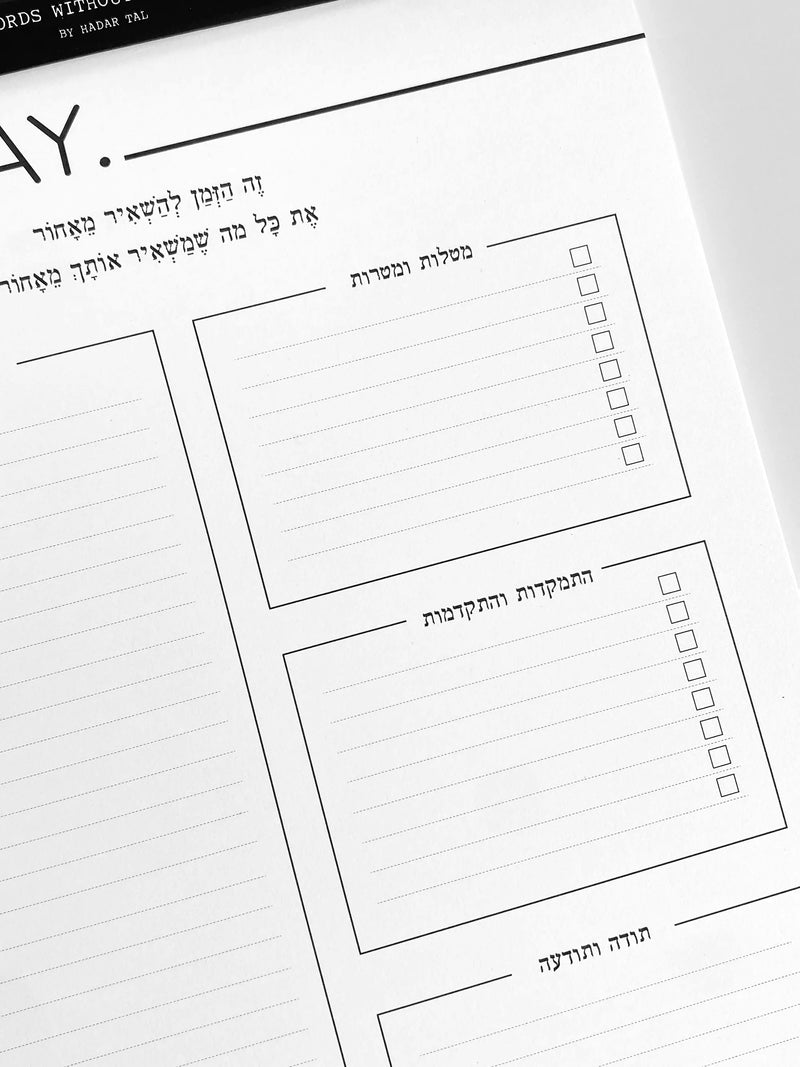 ORDS WITHOUT
BY HADAR TAL
AY.
זֶה הַזְּמַן לְהַשְׁאִיר מֵאָחוֹר
אֶת כָּל מה שֶׁמַּשְׁאִיר אוֹתָךְ מֵאָחוֹר
מטלות ומטרות
התמקדות והתקדמות
תודה ותודעה